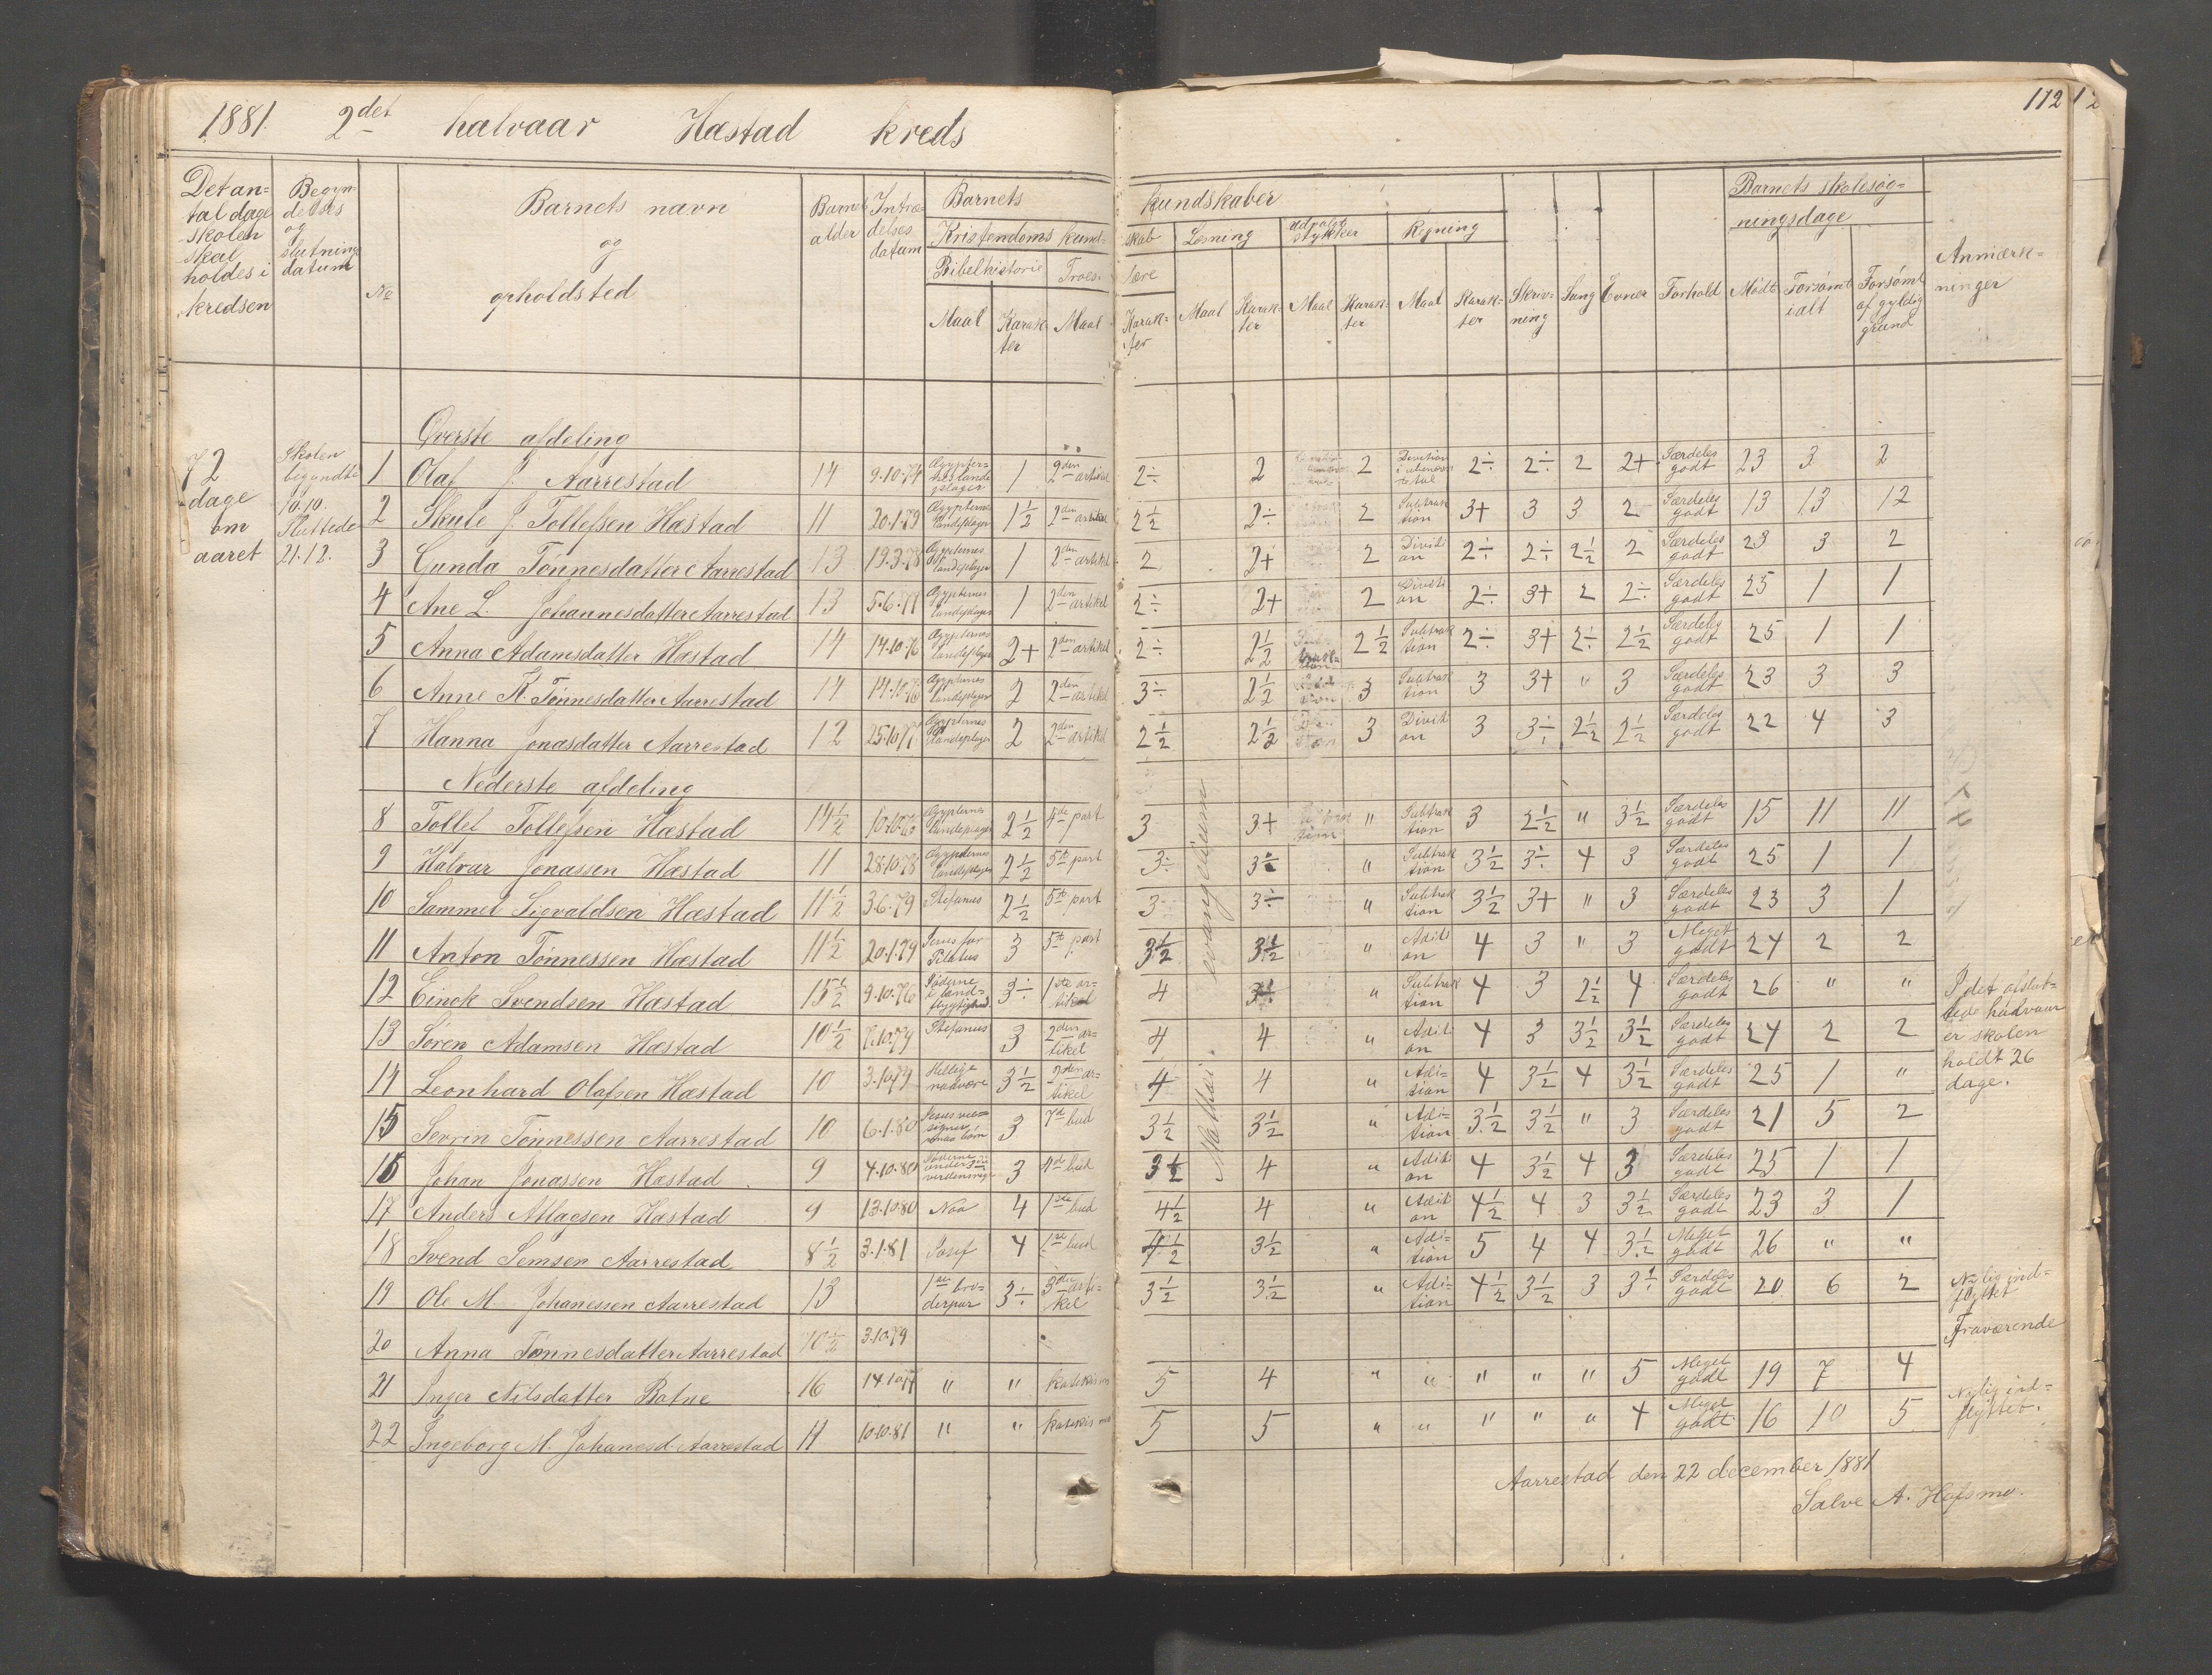 1881. 2det halvaar Hæstad kreds
112
Det antal dage skolen skal holdes i kredsen
Begyndelses og slutnings datum
No
Barnets navn og opholdsted
Barnets alder
Intrædelses datum
Barnets kundskaber
Kristendoms kundskab
Bibelhistorie Maal Karakter
Troeslære Maal Karakter
Læsning Maal Karakter
udvalgte stykker Maal Karakter
Regning Maal Karakter
Skrivning
Sang
Evner
Forhold
Barnets skolesøgningsdage
Mødt
Forsømt ialt
Forsømt af gyldig grund
Anmærkninger
72 dage om aaret
Skolen begyndte 10.10. Sluttede 21.12.
Øverste afdeling
1 Olaf J. Aarrestad 14 9.10.74 Ægypternes landeplager 1 2den artikel 2÷ 2 2 Division 2÷ 2÷ 2 2+ Særdeles godt 23 3 2
2 Skule J. Tollefsen Hæstad 11 20.1.79 Ægypternes landeplager 1½ 2den artikel 2½ 2÷ 2 Subtraktion 3+ 3 3 2 Særdeles godt 13 13 12
3 Gunda Tønnesdatter Aarrestad 13 19.3.78 Ægypternes landeplager 1 2den artikel 2 2+ 2 Division 2÷ 2÷ 2½ 2 Særdeles godt 23 3 2
4 Ane L. Johannesdatter Aarrestad 13 5.6.77 Ægypternes landeplager 1 2den artikel 2÷ 2+ 2 Division 2÷ 3+ 2 2÷ Særdeles godt 25 1 1
5 Anna Adamsdatter Hæstad 14 14.10.76 Ægypternes landeplager 2+ 2den artikel 2÷ 2½ 2½ Subtraktion 2÷ 3+ 2÷ 2½ Særdeles godt 25 1 1
6 Anne K. Tønnesdatter Aarrestad 14 14.10.76 Ægypternes landeplager 2 2den artikel 3÷ 2½ 3 Subtraktion 3 3+ " 3 Særdeles godt 23 3 3
7 Hanna Jonasdatter Aarrestad 12 25.10.77 Ægypternes landeplager 2 2den artikel 2½ 2½ 3 Division 3 3÷ 2½ 2½ Særdeles godt 22 4 3
Nederste afdeling
Mathæi evangelium
8 Tollef Tollefsen Hæstad 14½ 10.10.76 Ægypternes landeplager 2½ 4de part 3 3+ " Subtraktion 3 2½ " 3½ Særdeles godt 15 11 11
9 Halvar Jonassen Hæstad 11 28.10.78 Ægypternes landeplager 2½ 5te part 3÷ 3÷ " Subtraktion 3½ 3÷ 4 3 Særdeles godt 25 1 1
10 Sammel Sigvaldsen Hæstad 11½ 3.6.79 Stefanus 2½ 5te part 3 3÷ " Subtraktion 3½ 3+ " 3 Særdeles godt 23 3 1
11 Anton Tønnessen Hæstad 11½ 20.1.79 Jesus for Pilatus 3 5te part 3½ 3½ " Adition 4 3 " 3 Meget godt 24 2 2
12 Einck Svendsen Hæstad 15½ 9.10.76 Jøderne i landflygtighed 3÷ 1ste artikel 4 " Subtraktion 4 3 2½ 4 Særdeles godt 26 " "
13 Søren Adamsen Hæstad 10½ 7.10.79 Stefanus 3 2den artikel 4 4 " Adition 4 3 3½ 3½ Særdeles godt 24 2 2
14 Leonhard Olafsen Hæstad 10 3.10.79 Hellige nadvere 3½ 2den artikel 4 4 " Adition 4 3½ 4 3½ Særdeles godt 25 1 "
15 Sevrin Tønnessen Aarrestad 10 6.1.80 Jesus velsigner smaa børn 3 7de bud 3½ 3½ " Adition 3½ 3½ " 3 Særdeles godt 21 5 2
16 Johan Jonassen Hæstad 9 4.10.80 Jøderne 3 4de bud 3½ 4 " Adition 4 3½ 4 3 Særdeles godt 25 1 1
17 Anders Atlagsen Hæstad 9 13.10.80 Noa 4 1ste bud 4½ 4 " Adition 4½ 4 3 3½ Særdeles godt 23 3 1
18 Svend Semsen Aarrestad 8½ 3.1.81 Josef 4 1ste bud 4½ 3½ " Adition 5 4 4 3½ Meget godt 26 " "
19 Ole M. Johanessen Aarrestad 13 1ste broderpar 3÷ 3die artikel 3½ 3½ " Adition 4½ 3½ 3 3½ Særdeles godt 20 6 2 Nylig indflyttet
20 Anna Tønnesdatter Aarrestad 10½ 3.10.79 Fraværende
21 Inger Nilsdatter Botne 16 14.10.77 " " 5 4 " " " " " 5 Meget godt 19 7 4
22 Ingeborg M. Johanesd. Aarrestad 11 10.10.81 " " 5 5 " " " " " 4 Meget godt 16 10 5 Nylig indflyttet.
I det afsluttede halvaar er skolen holdt 26 dage.
Aarrestad den 22 december 1881
Salve A. Hafsmo.